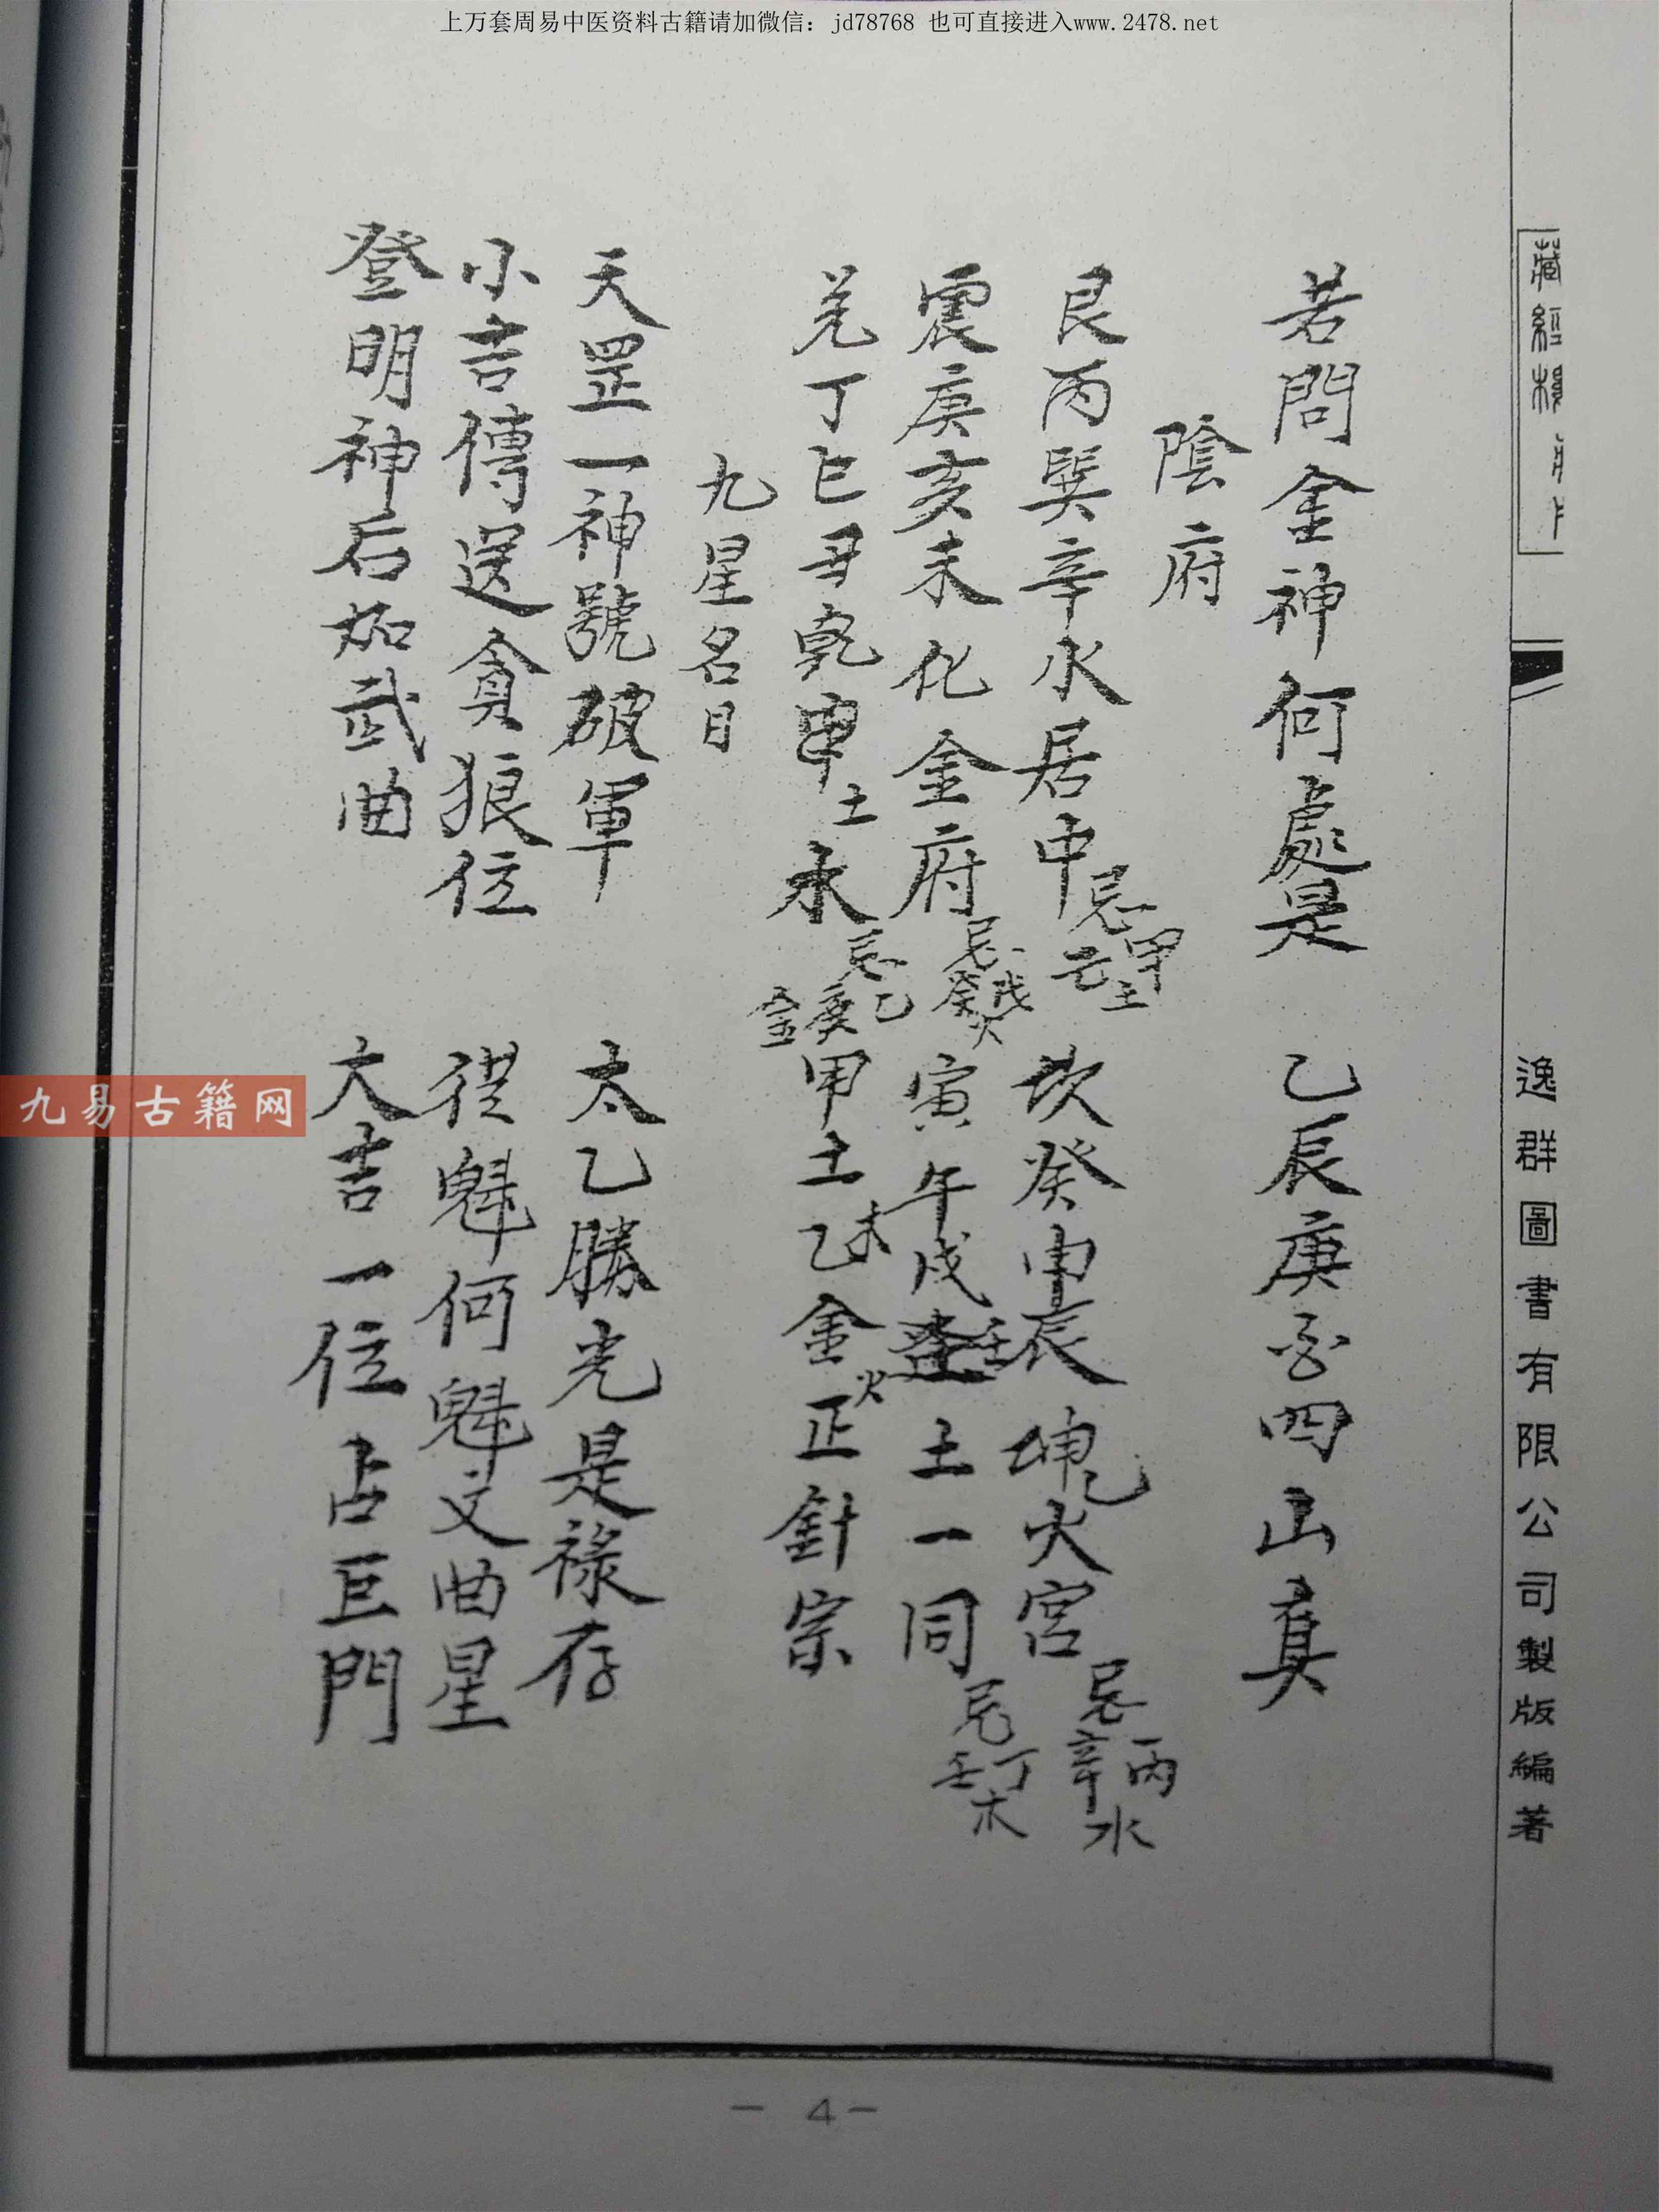 上万套周易中医资料古籍请加微信：jd78768 也可直接进入www.2478.net
藏經
逸群圖書有限公司製版編著
若問金神何處是 乙辰庚酉四山真
陰府
艮丙巽辛水居中忌甲己土 坎癸申辰坤乙火宮忌丙辛水
震庚亥未化金府忌戊癸火 寅午戌壬土一同忌丁壬木
兑丁巳丑乾甲土木忌乙庚金 甲土木乙金火正針宗
九星名目
天罡一神號破軍 太乙勝光是祿存
小吉傳送貪狼位 從魁何魁文曲星
登明神后如武曲 大吉一位占巨門
九易古籍网
- 4 -